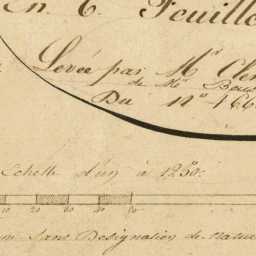 en C. Feuill
Levée par Mr Cle
de Mr
Du no 166
Echelle d'un à 1250.
10 20 40 50
Sans Designation de Natu